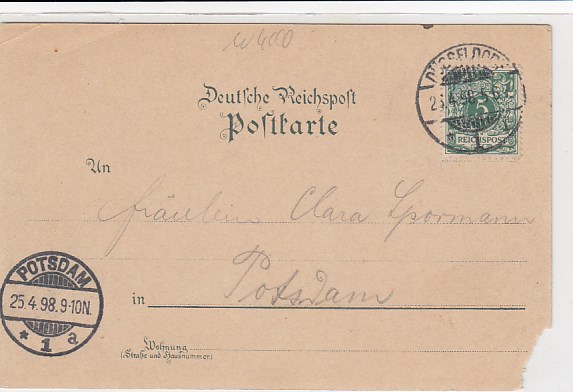 w 400
DÜSSELDORF
1
5
REICHSPOST
Deutsche Reichspost
Postkarte
An
Fräulein Clara Spormann
Potsdam
in
POTSDAM
25.4.98.9-10N.
* 1 a
Wohnung
(Straße und Hausnummer)